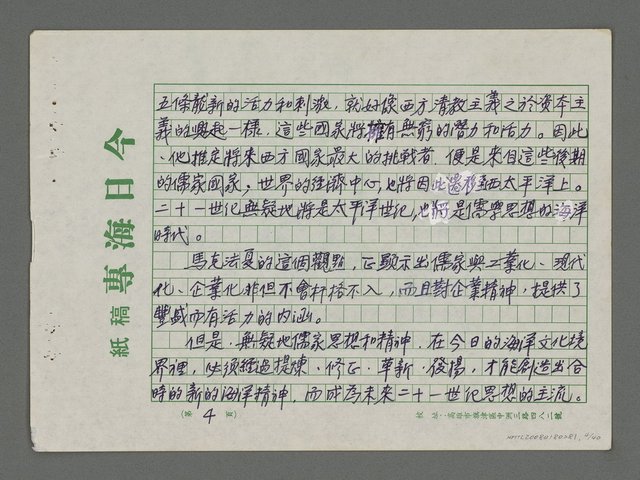 五條龍新的活力和刺激，就好像西方清教主義之於資本主
義的興起一樣，這些國家將擁有無窮的潛力和活力。因此
，他推定將來西方國家最大的挑戰者，便是來自這些後期
的儒家國家，世界的經濟中心，也將因此遷移至西太平洋上。
二十一世紀無疑地將是太平洋世紀，也將是儒學思想的海洋
時代。
馬克法夏的這個觀點，正顯示出儒家與工業化、現代
化、企業化非但不會杆格不入，而且對企業精神，提供了
豐盛而有活力的內涵。
但是，無疑地儒家思想和精神，在今日的海洋文化境
界裡，必須經過提煉、修正、革新、發揚，才能創造出合
時的新的海洋精神，而成為未來二十一世紀思想的主流。
今日海專稿紙
(第 4 頁)
校址：高雄市旗津區中洲三路四八二號
NMTL20080180281, 4/40